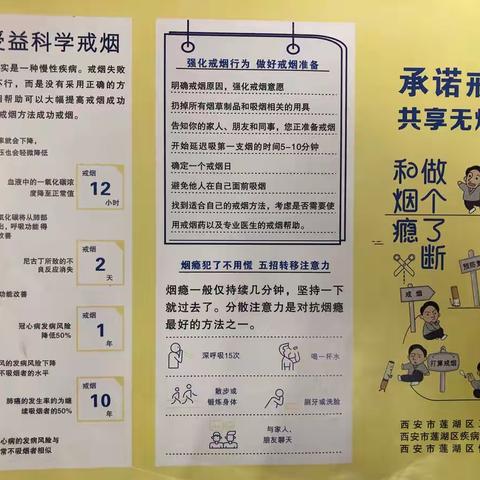 受益科学戒烟
实是一种慢性疾病。戒烟失败
不行，而是没有采用正确的方
烟帮助可以大幅提高戒烟成功
戒烟方法成功戒烟。
率就会下降，
压也会轻微降低
戒烟
12
小时
血液中的一氧化碳浓
度降至正常值
氧化碳将从肺部
出，呼吸功能得
改善
戒烟
2
天
尼古丁所致的不
良反应消失
功能改善
戒烟
1
年
冠心病发病风险
降低50%
风的发病风险下降
不吸烟者的水平
戒烟
10
年
肺癌的发生率约为继
续吸烟者的50%
心病的发病风险与
常不吸烟者相似
强化戒烟行为 做好戒烟准备
明确戒烟原因，强化戒烟意愿
扔掉所有烟草制品和吸烟相关的用具
告知你的家人、朋友和同事，您正准备戒烟
开始延迟吸第一支烟的时间5-10分钟
确定一个戒烟日
避免他人在自己面前吸烟
找到适合自己的戒烟方法，考虑是否需要使
用戒烟药以及专业医生的戒烟帮助。
烟瘾犯了不用慌 五招转移注意力
烟瘾一般仅持续几分钟，坚持一下
就过去了。分散注意力是对抗烟瘾
最好的方法之一。
深呼吸15次
喝一杯水
散步或
锻炼身体
刷牙或洗脸
与家人、
朋友聊天
承诺戒
共享无烟
和烟瘾
做个了断
戒烟
打算戒烟
西安市莲湖区
西安市莲湖区疾病
西安市莲湖区